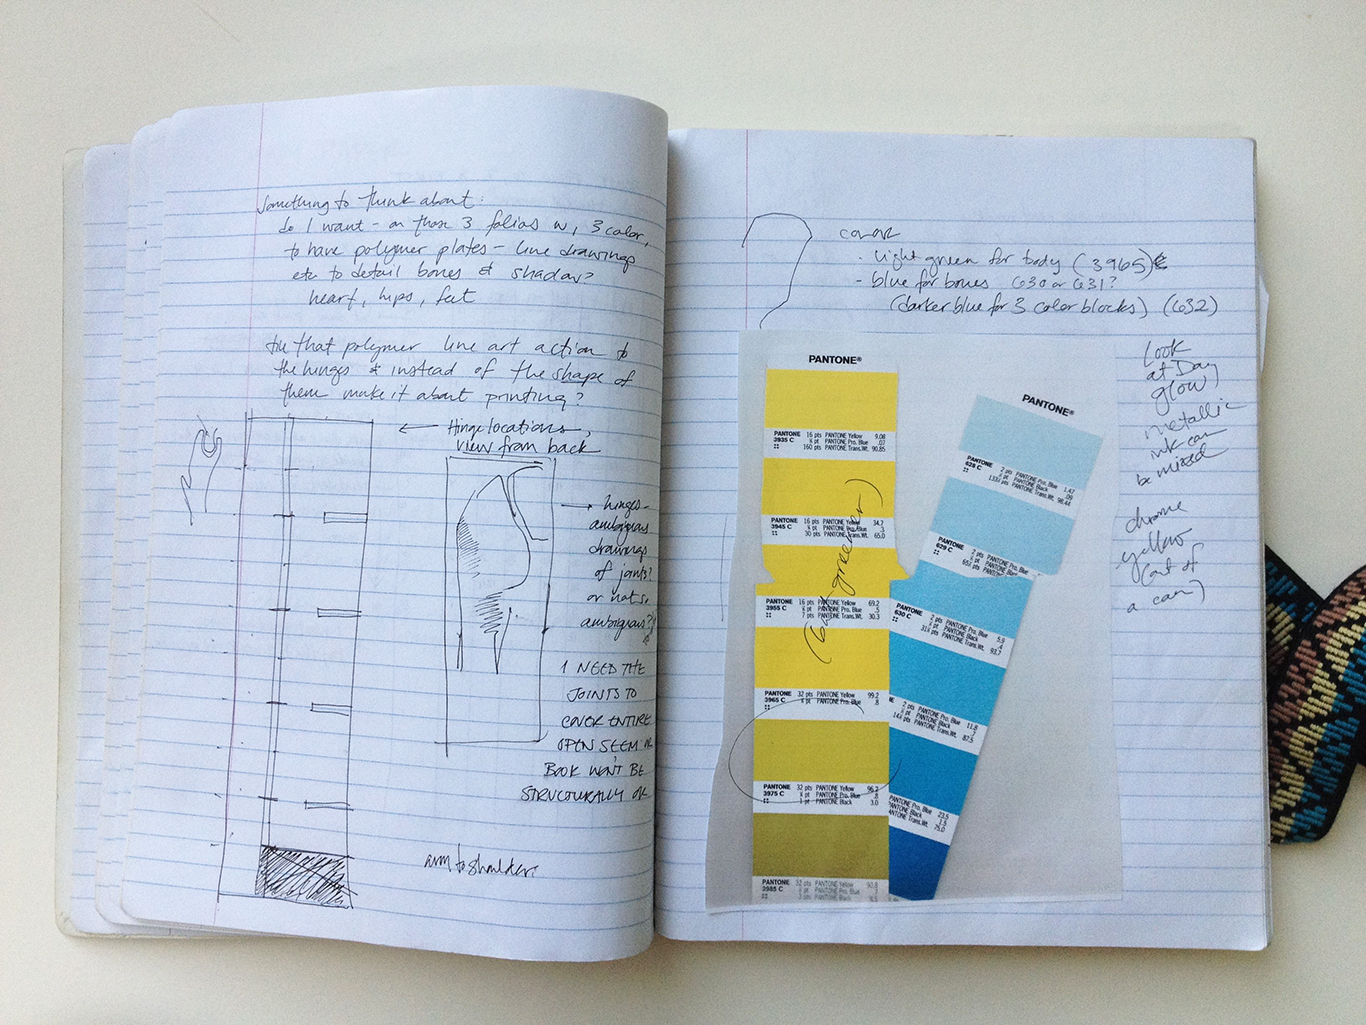 Something to think about:
do I want - on those 3 folios w/ 3 color,
to have polymer plates - line drawings
etc to detail bones & shadow?
heart, hips, feet
tie that polymer line art action to
the hinges & instead of the shape of
them make it about printing?
← Hinge locations,
view from back
→ hinges -
ambiguous
drawings
of joints?
or not so
ambiguous?
I NEED THE
JOINTS TO
COVER ENTIRE
OPEN SEEM OR
BOOK WON'T BE
STRUCTURALLY OK
arm to shoulder
color
- light green for body (3965)
- blue for bones 630 or 631?
(darker blue for 3 color blocks) (632)
Look
at Day
glow)
metallic
ink can
be mixed
chrome
yellow
(out of
a can)
PANTONE®
PANTONE 16 pts PANTONE Yellow 9.08
3935 C ⅛ pt PANTONE Pro. Blue .07
160 pts PANTONE Trans.Wt. 90.85
PANTONE 16 pts PANTONE Yellow 34.7
3945 C PANTONE Pro. Blue .3
30 pts PANTONE Trans.Wt. 65.0
(but greener)
PANTONE 16 pts PANTONE Yellow 69.2
3955 C PANTONE Pro. Blue .5
7 pts PANTONE Trans.Wt. 30.3
PANTONE 32 pts PANTONE Yellow 99.2
3965 C ¼ pt PANTONE Pro. Blue .8
PANTONE 32 pts PANTONE Yellow 96.2
3975 C ¼ pt PANTONE Pro. Blue .8
1 pt PANTONE Black 3.0
PANTONE 32 pts PANTONE Yellow
3985 C PANTONE Pro. Blue
PANTONE Black
PANTONE®
PANTONE 2 pts PANTONE Pro. Blue 1.47
628 C PANTONE Black .09
PANTONE Trans.Wt. 98.44
PANTONE 2 pts PANTONE Pro. Blue
629 C PANTONE Black
PANTONE Trans.Wt.
PANTONE 2 pts PANTONE Pro. Blue 5.9
630 C PANTONE Black .4
PANTONE Trans.Wt. 93.7
2 pts PANTONE Pro. Blue 11.8
PANTONE Black .7
PANTONE Trans.Wt. 87.5
PANTONE Pro. Blue 23.5
PANTONE Black 1.5
PANTONE Trans.Wt. 75.0